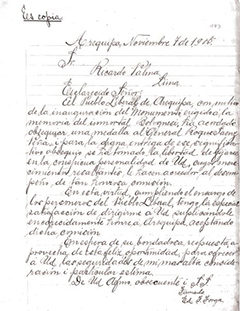 Es copia
Arequipa, Noviembre 7 de 1905
Sr.
Ricardo Palma
Lima
Esclarecido Señor:
El Pueblo Liberal de Arequipa, con motivo
de la inauguración del Monumento erigido a la
memoria del inmortal Bolognesi, ha acordado
obsequiar, una medalla al General Roque Saenz
Peña; y para la digna entrega de ese significa-
tivo obsequio se ha tomado la libertad de fijarse
en la conspicua personalidad de Ud, cuyos mere-
cimientos le hacen acreedor al desem-
peño, de tan honrosa comisión.
En esta virtud, cumpliendo el encargo de
los personeros del Pueblo Liberal, tengo la especial
satisfacción de dirigirme a Ud suplicándole
honrar a Arequipa, aceptando
dicha comisión
En espera de su bondadosa respuesta
aprovecho de esta feliz oportunidad, para ofrecer
a Ud, las seguridades de mi más alta conside-
ración i particular estima.
De Ud Afmo. obsecuente i S. S.
Firmado